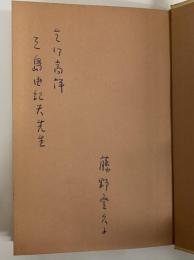 乞御高評
三島由紀夫先生
藤野